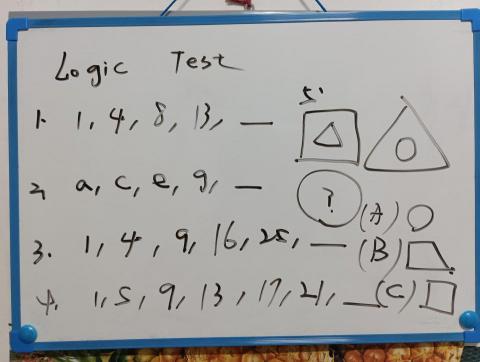 Logic Test
1. 1, 4, 8, 13, __
2, a, c, e, g, __
3. 1, 4, 9, 16, 25, __
4. 1, 5, 9, 13, 17, 21, __
5'
?
(A)
(B)
(C)